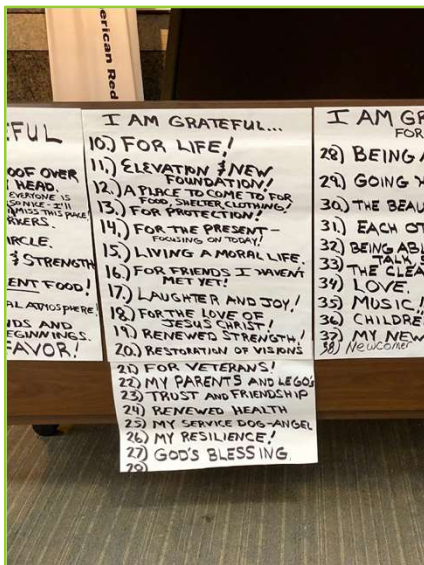 erican Red
EFUL
OOF OVER
HEAD.
EVERYONE IS
SO NICE - I'LL
MISS THIS PLACE!
RKERS.
IRCLE.
& STRENGTH
ENT FOOD!
AL ATMOSPHERE!
NDS AND
EGINNINGS.
FAVOR!
I AM GRATEFUL...
10.) FOR LIFE!
11.) ELEVATION & NEW
FOUNDATION!
12.) A PLACE TO COME TO FOR
FOOD, SHELTER CLOTHING!
13.) FOR PROTECTION!
14.) FOR THE PRESENT -
FOCUSING ON TODAY!
15.) LIVING A MORAL LIFE.
16.) FOR FRIENDS I HAVEN'T
MET YET!
17.) LAUGHTER AND JOY!
18.) FOR THE LOVE OF
JESUS CHRIST!
19.) RENEWED STRENGTH!
20.) RESTORATION OF VISIONS
21) FOR VETERANS!
22) MY PARENTS AND LEGO'S
23) TRUST AND FRIENDSHIP
24) RENEWED HEALTH
25) MY SERVICE DOG-ANGEL
26) MY RESILIENCE!
27) GOD'S BLESSING.
28)
I AM GR
FOR
28) BEING
29.) GOING
30.) THE BEAU
31.) EACH OT
32) BEING ABL
TALK
33) THE CLEA
34) LOVE.
35) MUSIC!
36) CHILDRE
37) MY NEW
38) Newcomer